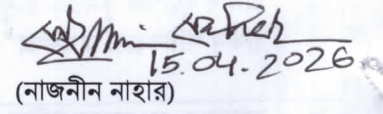 15.04.2026
(নাজনীন নাহার)